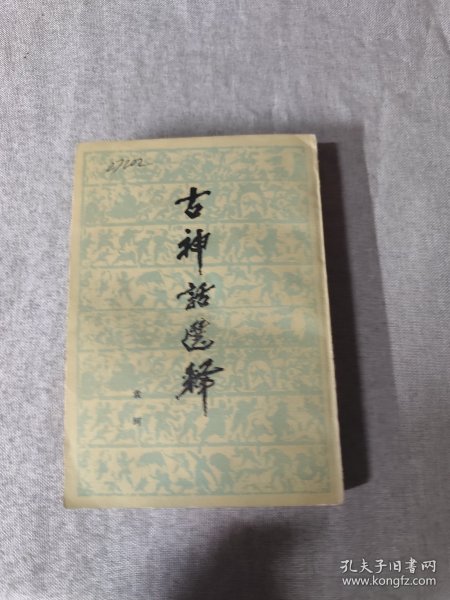 27202
古神话选释
袁珂
孔夫子旧书网
www.kongfz.com